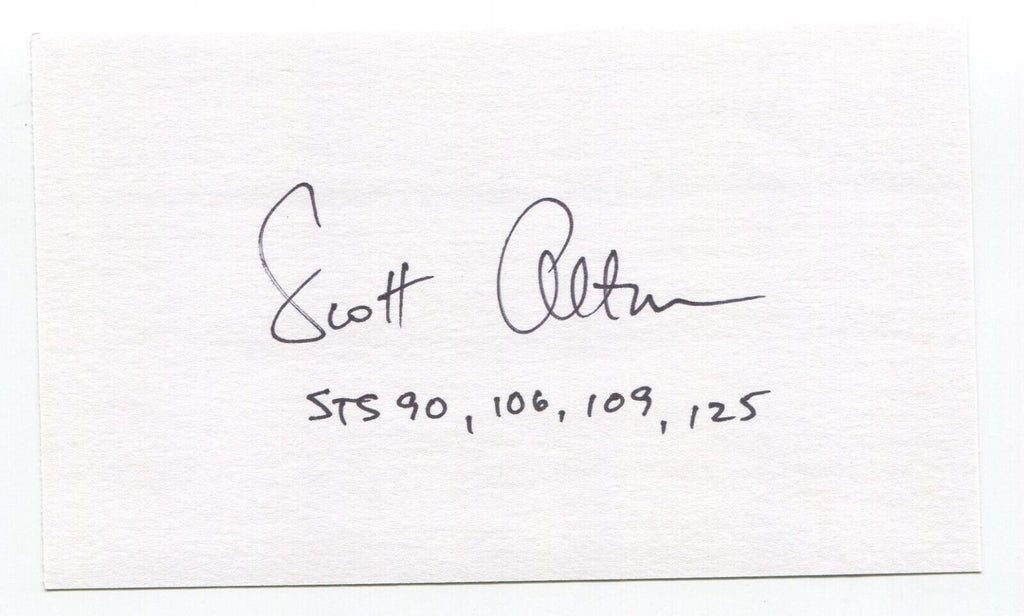 Scott Altman
STS 90, 106, 109, 125